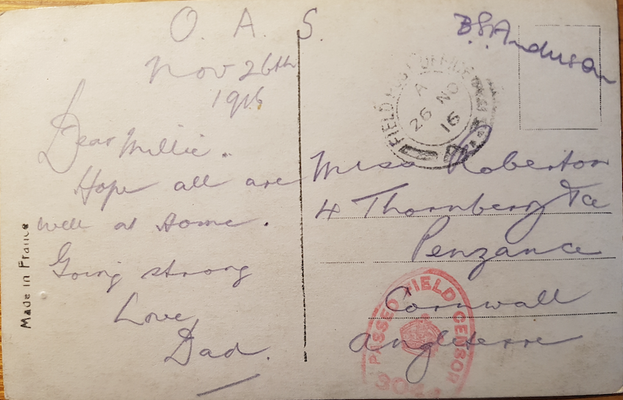 O. A. S.
Nov 26th
1916
Dear Millie.
Hope all are
well at home.
Going strong
Love
Dad.
Made in France
FIELD POST OFFICE
A
26 NO
16
Miss Roberton
4 Thornberry Tce
Penzance
Cornwall
Angleterre
PASSED FIELD CENSOR